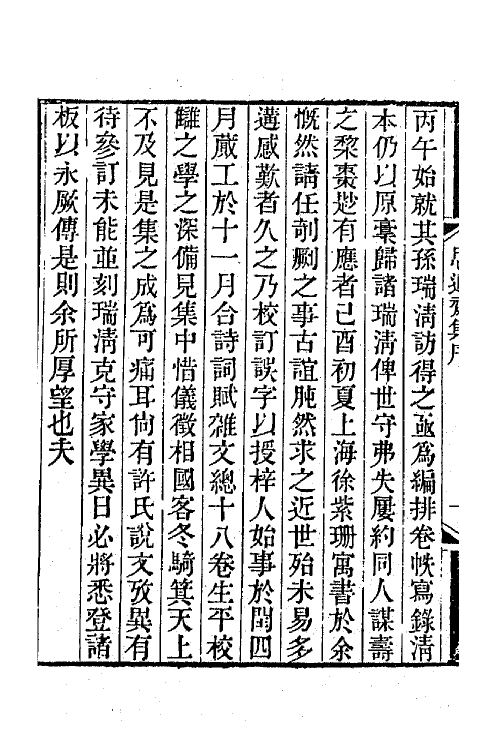 丙午始就其孫瑞淸訪得之亟爲編排卷帙寫錄淸
本仍以原稾歸諸瑞淸俾世守弗失屢約同人謀壽
之棃棗尟有應者己酉初夏上海徐紫珊寓書於余
慨然請任剞劂之事古誼肫然求之近世殆未易多
遘感歎者久之乃校訂誤字以授梓人始事於閏四
月蕆工於十一月合詩詞賦雜文總十八卷生平校
讎之學之深備見集中惜儀徵相國客冬騎箕天上
不及見是集之成爲可痛耳尙有許氏說文攷異有
待參訂未能並刻瑞淸克守家學異日必將悉登諸
板以永厥傳是則余所厚望也夫
思適齋集序